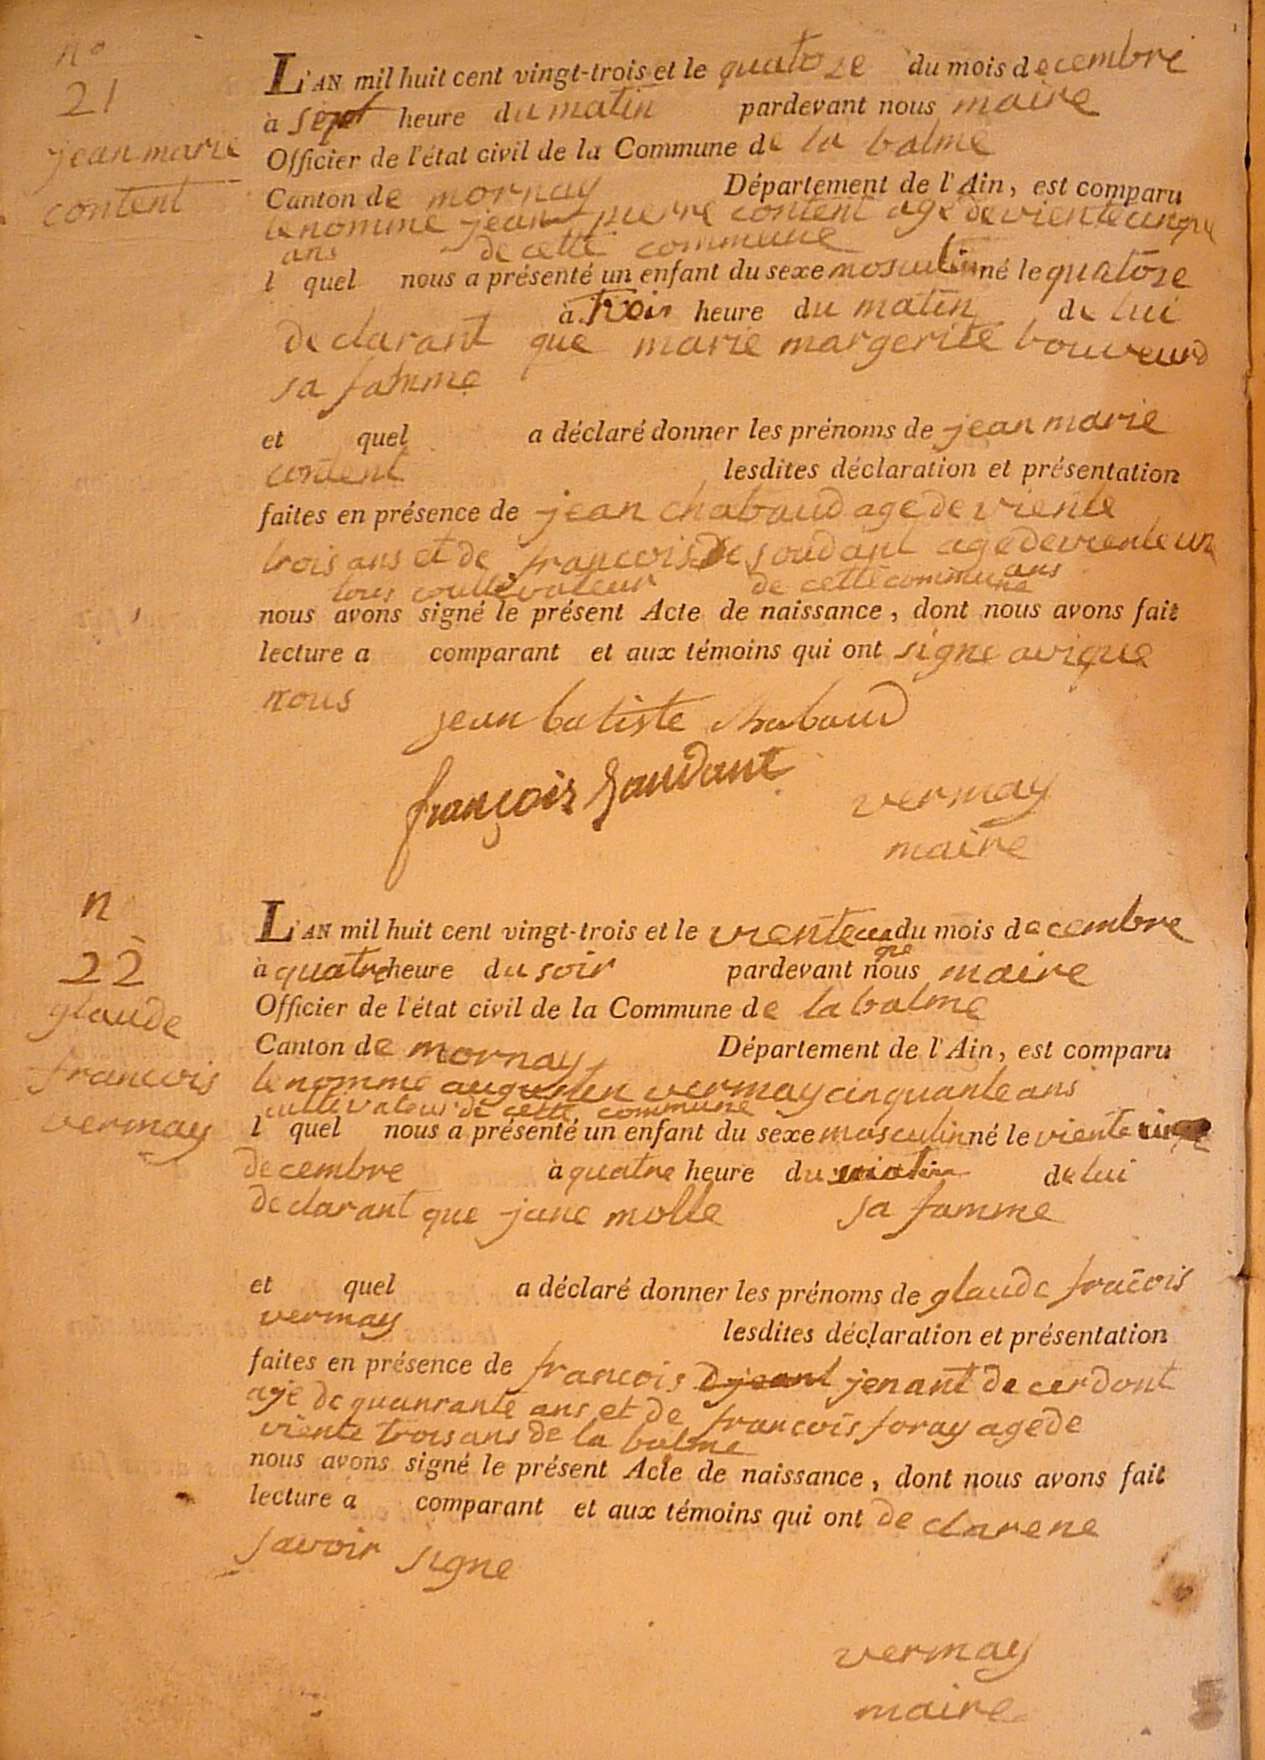 n°
21
jean marie
content
L'AN mil huit cent vingt-trois et le quatoze du mois decembre
à sept heure du matin pardevant nous maire
Officier de l'état civil de la Commune de la balme
Canton de mornay Département de l'Ain, est comparu
le nomme jean pierre content age de viente cinque
ans de cette commune
l quel nous a présenté un enfant du sexe mosculin né le quatoze
à trois heure du matin de lui
declarant que marie margerite bouveurd
sa famme
et quel a déclaré donner les prénoms de jean marie
content lesdites déclaration et présentation
faites en présence de jean chabaud age de viente
trois ans et de francois de soudant age de viente un
ans
tous coultivateur de cette commune
nous avons signé le présent Acte de naissance, dont nous avons fait
lecture a comparant et aux témoins qui ont signe avique
nous
jean batiste chabaud
françois Saudant
vermay
maire
n
22
glaude
francois
vermay
L'AN mil huit cent vingt-trois et le viente cin du mois decembre
que
à quatre heure du soir pardevant nous maire
Officier de l'état civil de la Commune de la balme
Canton de mornay Département de l'Ain, est comparu
le nomme augusten vermay cinquante ans
cultivateur de cette commune
l quel nous a présenté un enfant du sexe masculin né le viente cinque
decembre à quatre heure du matin de lui
declarant que jane molle sa famme
et quel a déclaré donner les prénoms de glaude fracois
vermay lesdites déclaration et présentation
faites en présence de francois jenant de cerdont
aje de quanrante ans et de francois foray age de
viente trois ans de la balme
nous avons signé le présent Acte de naissance, dont nous avons fait
lecture a comparant et aux témoins qui ont de clare ne
savoir signe
vermay
maire